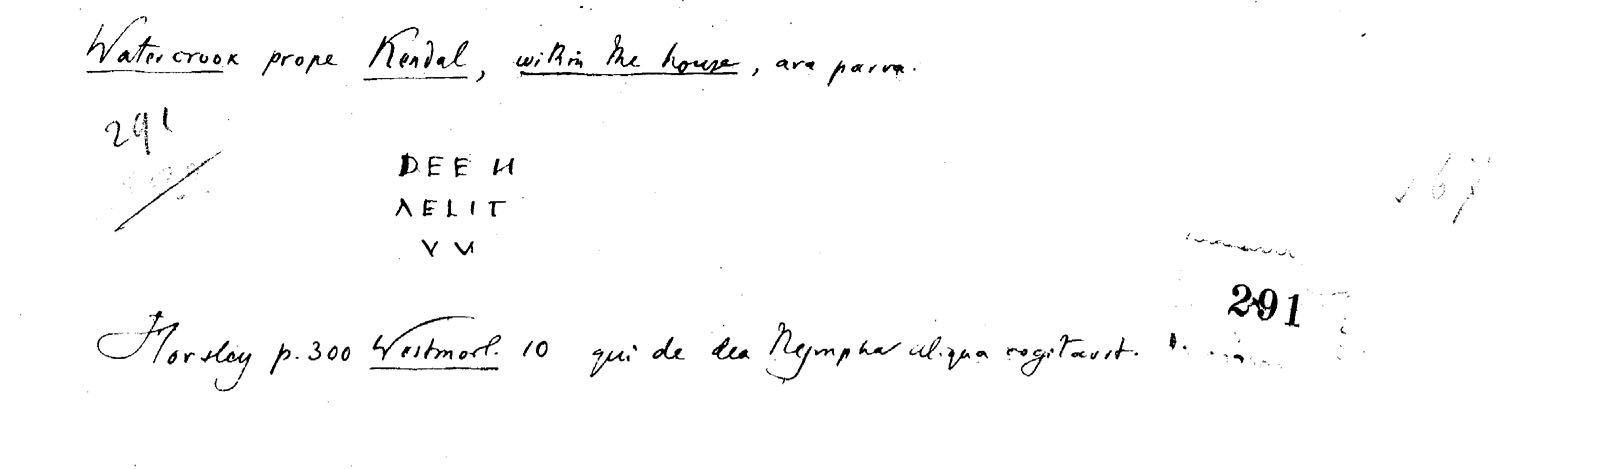 Watercrook prope Kendal, within the house, ara parva.
291
DEE И
ΛELIT
V И
291
Horsley p. 300 Westmorl. 10 qui de dea Nympha aliqua cogitavit.